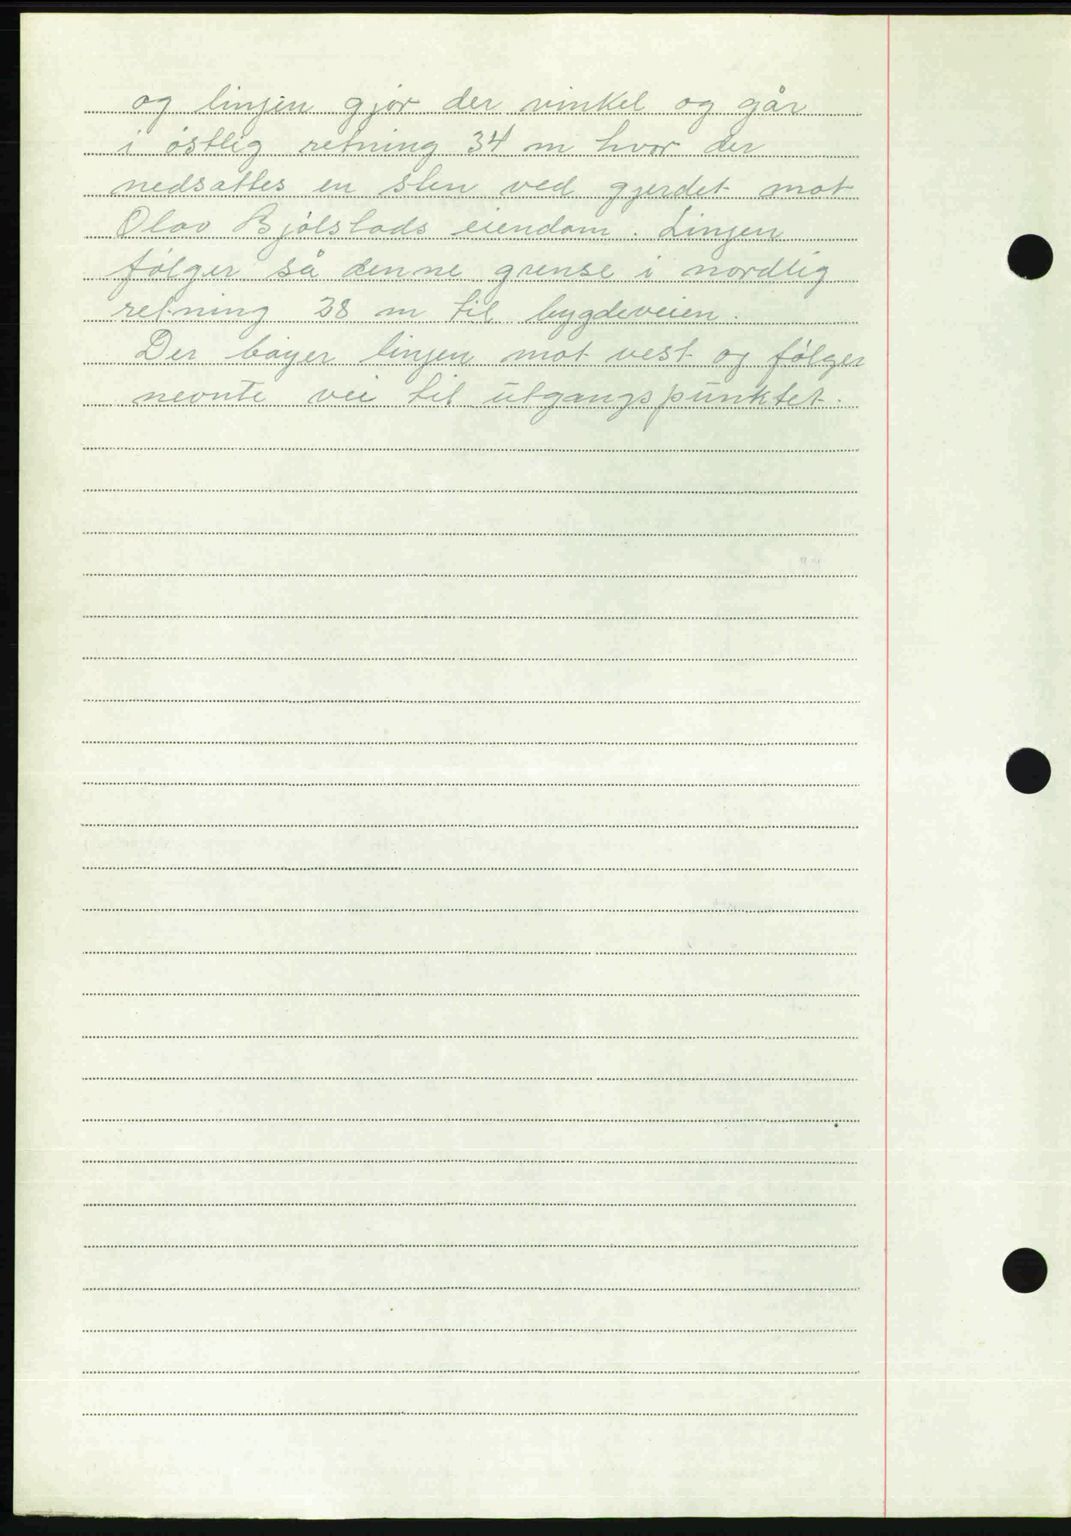 og linjen gjør der vinkel og går
i østlig retning 34 m hvor der
nedsattes en sten ved gjerdet mot
Olav Bjølstads eiendom. Linjen
følger så denne grense i nordlig
retning 38 m til bygdeveien.
Der bøyer linjen mot vest og følger
nevnte vei til utgangspunktet.